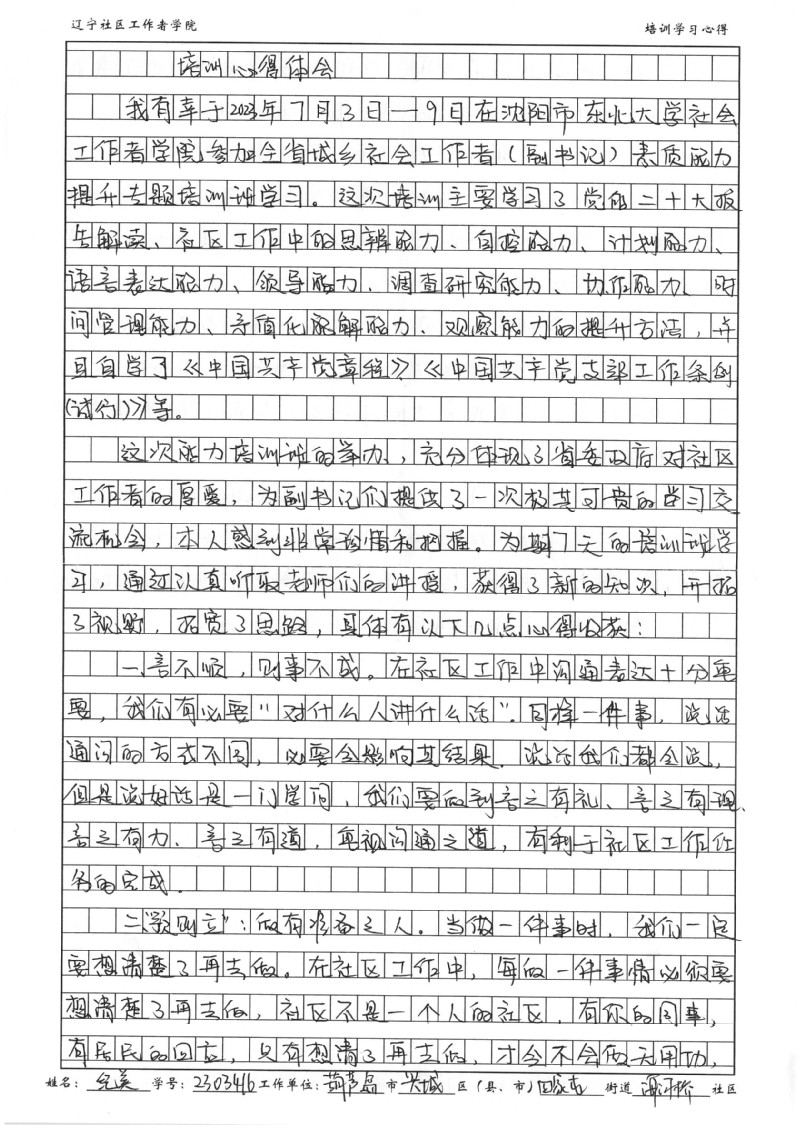 辽宁社区工作者学院 培训学习心得
培训心得体会
我有幸于2023年7月3日一9日在沈阳市东北大学社会
工作者学院参加全省城乡社会工作者（副书记）素质能力
提升专题培训班学习。这次培训主要学习了党的二十大报
告解读、社区工作中的思辨能力、自控能力、计划能力、
语言表达能力、领导能力、调查研究能力、协作能力、时
间管理能力、矛盾化解能力、观察能力的提升方法，并
且自学了《中国共产党章程》《中国共产党支部工作条例
(试行)》等。
这次能力培训班的举办，充分体现了省委政府对社区
工作者的厚爱，为副书记们提供了一次极其可贵的学习交
流机会，本人感到非常珍惜和把握。为期7天的培训班学
习，通过认真听取老师们的讲授，获得了新的知识，开拓
了视野，拓宽了思路，具体有以下几点心得收获：
一.言不顺，则事不成。在社区工作中沟通表达十分重
要，我们有必要"对什么人讲什么话"。同样一件事，说话
通问的方式不同，必要会影响其结果。说话我们都会说，
但是说好话是一门学问，我们要做到言之有礼、言之有理、
言之有力、言之有道，重视沟通之道，有利于社区工作任
务的完成。
二."预则立"：做有准备之人。当做一件事时，我们一定
要想清楚了再去做。在社区工作中，每做一件事情必须要
想清楚了再去做，社区不是一个人的社区，有你的同事，
有居民的回应，只有想清了再去做，才会不会做无用功，
姓名： 学号：2303416 工作单位：葫芦岛 市 兴城 区（县、市） 街道 社区